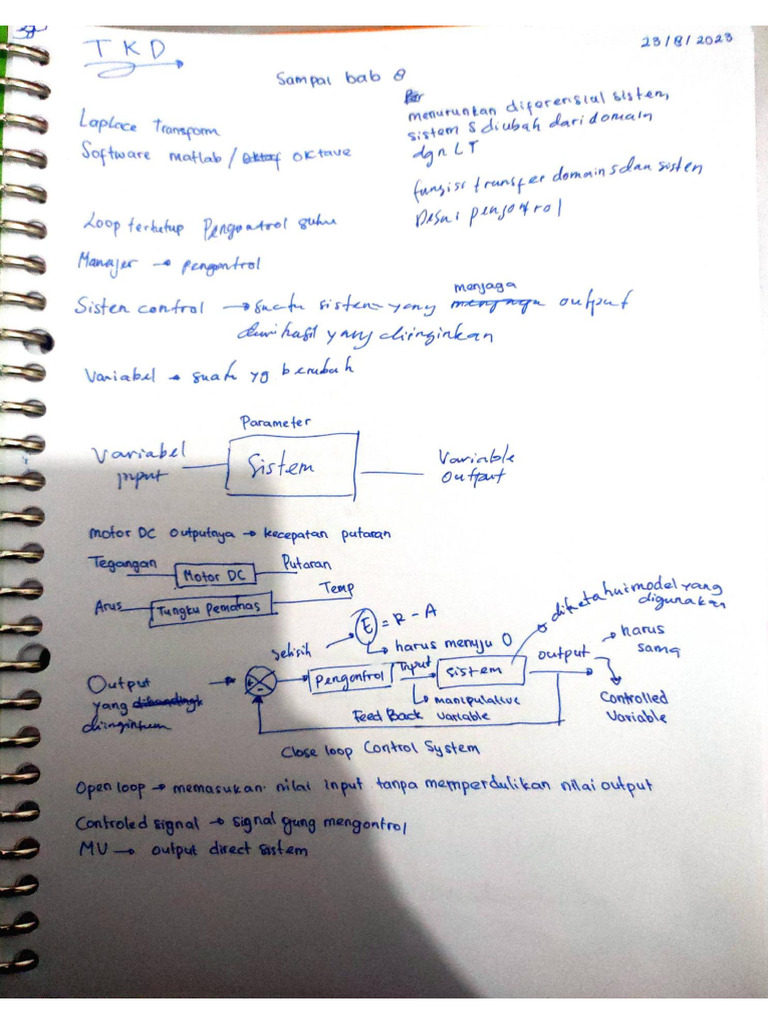 TKD
23/8/2023
Sampai bab 8
Laplace Transform
Software matlab / oktave
menurunkan diferensial sistem,
sistem S diubah dari domain
dgn LT
fungisi transfer domain s dan sisten
Desai pengontrol
Loop tertutup Pengontrol suhu
Manajer → pengontrol
Sisten control → suatu sistem yang menjaga output
dari hasil yang diinginkan
Variabel → suatu yg berubah
Parameter
Variabel
input
Sistem
Variable
Output
Motor DC outputnya → kecepatan putaran
Tegangan
Motor DC
Putaran
Arus
Tungku Pemanas
Temp
E = R - A
selisih
harus menuju 0
diketahui model yang
digunakan
Output
yang
diinginkan
+
-
Pengontrol
Input
sistem
output
harus
sama
manipulative
variable
Controlled
Variable
Feed Back
Close loop Control System
Open loop → memasukan nilai input tanpa memperdulikan nilai output
Controled signal → signal yung mengontrol
MV → output direct sistem